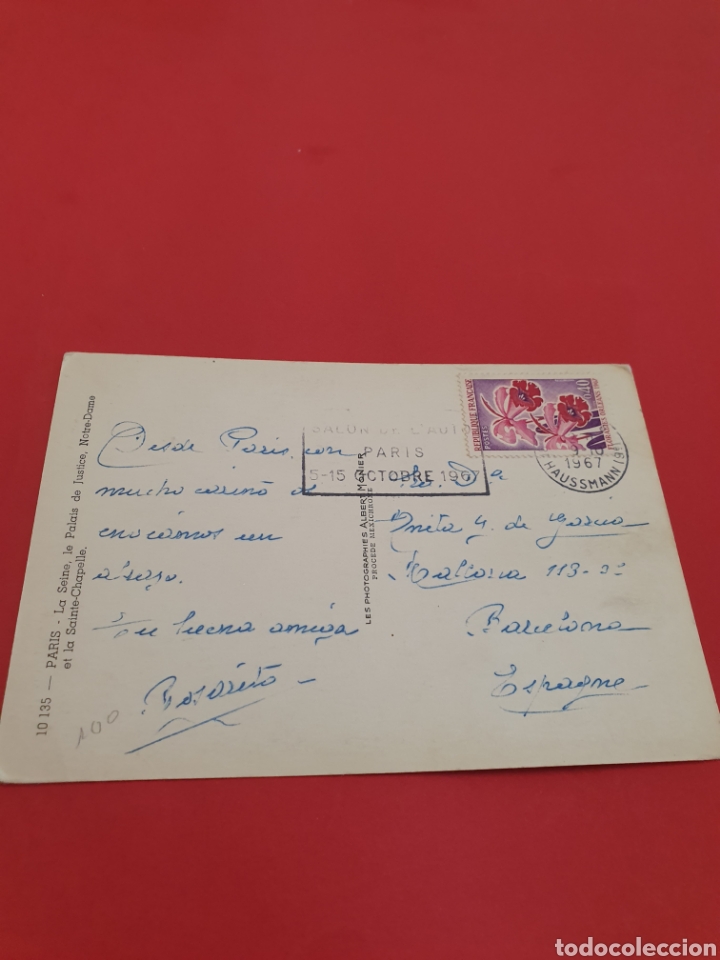 10 135 — PARIS - La Seine, le Palais de Justice, Notre-Dame
et la Sainte-Chapelle.
Desde Paris, con
mucho cariño
un
abrazo.
Tu buena amiga
Rosarito
100
LES PHOTOGRAPHIES ALBERT MONIER
PROCEDE MEXICHROME
SALON DE L'AUTO
PARIS
5-15 OCTOBRE 1967
REPUBLIQUE FRANÇAISE
POSTES
0,40
FLORALIES ORLEANS 1967
1967
HAUSSMANN (9e)
Anita G. de García
Mallorca 113
Barcelona
Espagne
todocoleccion